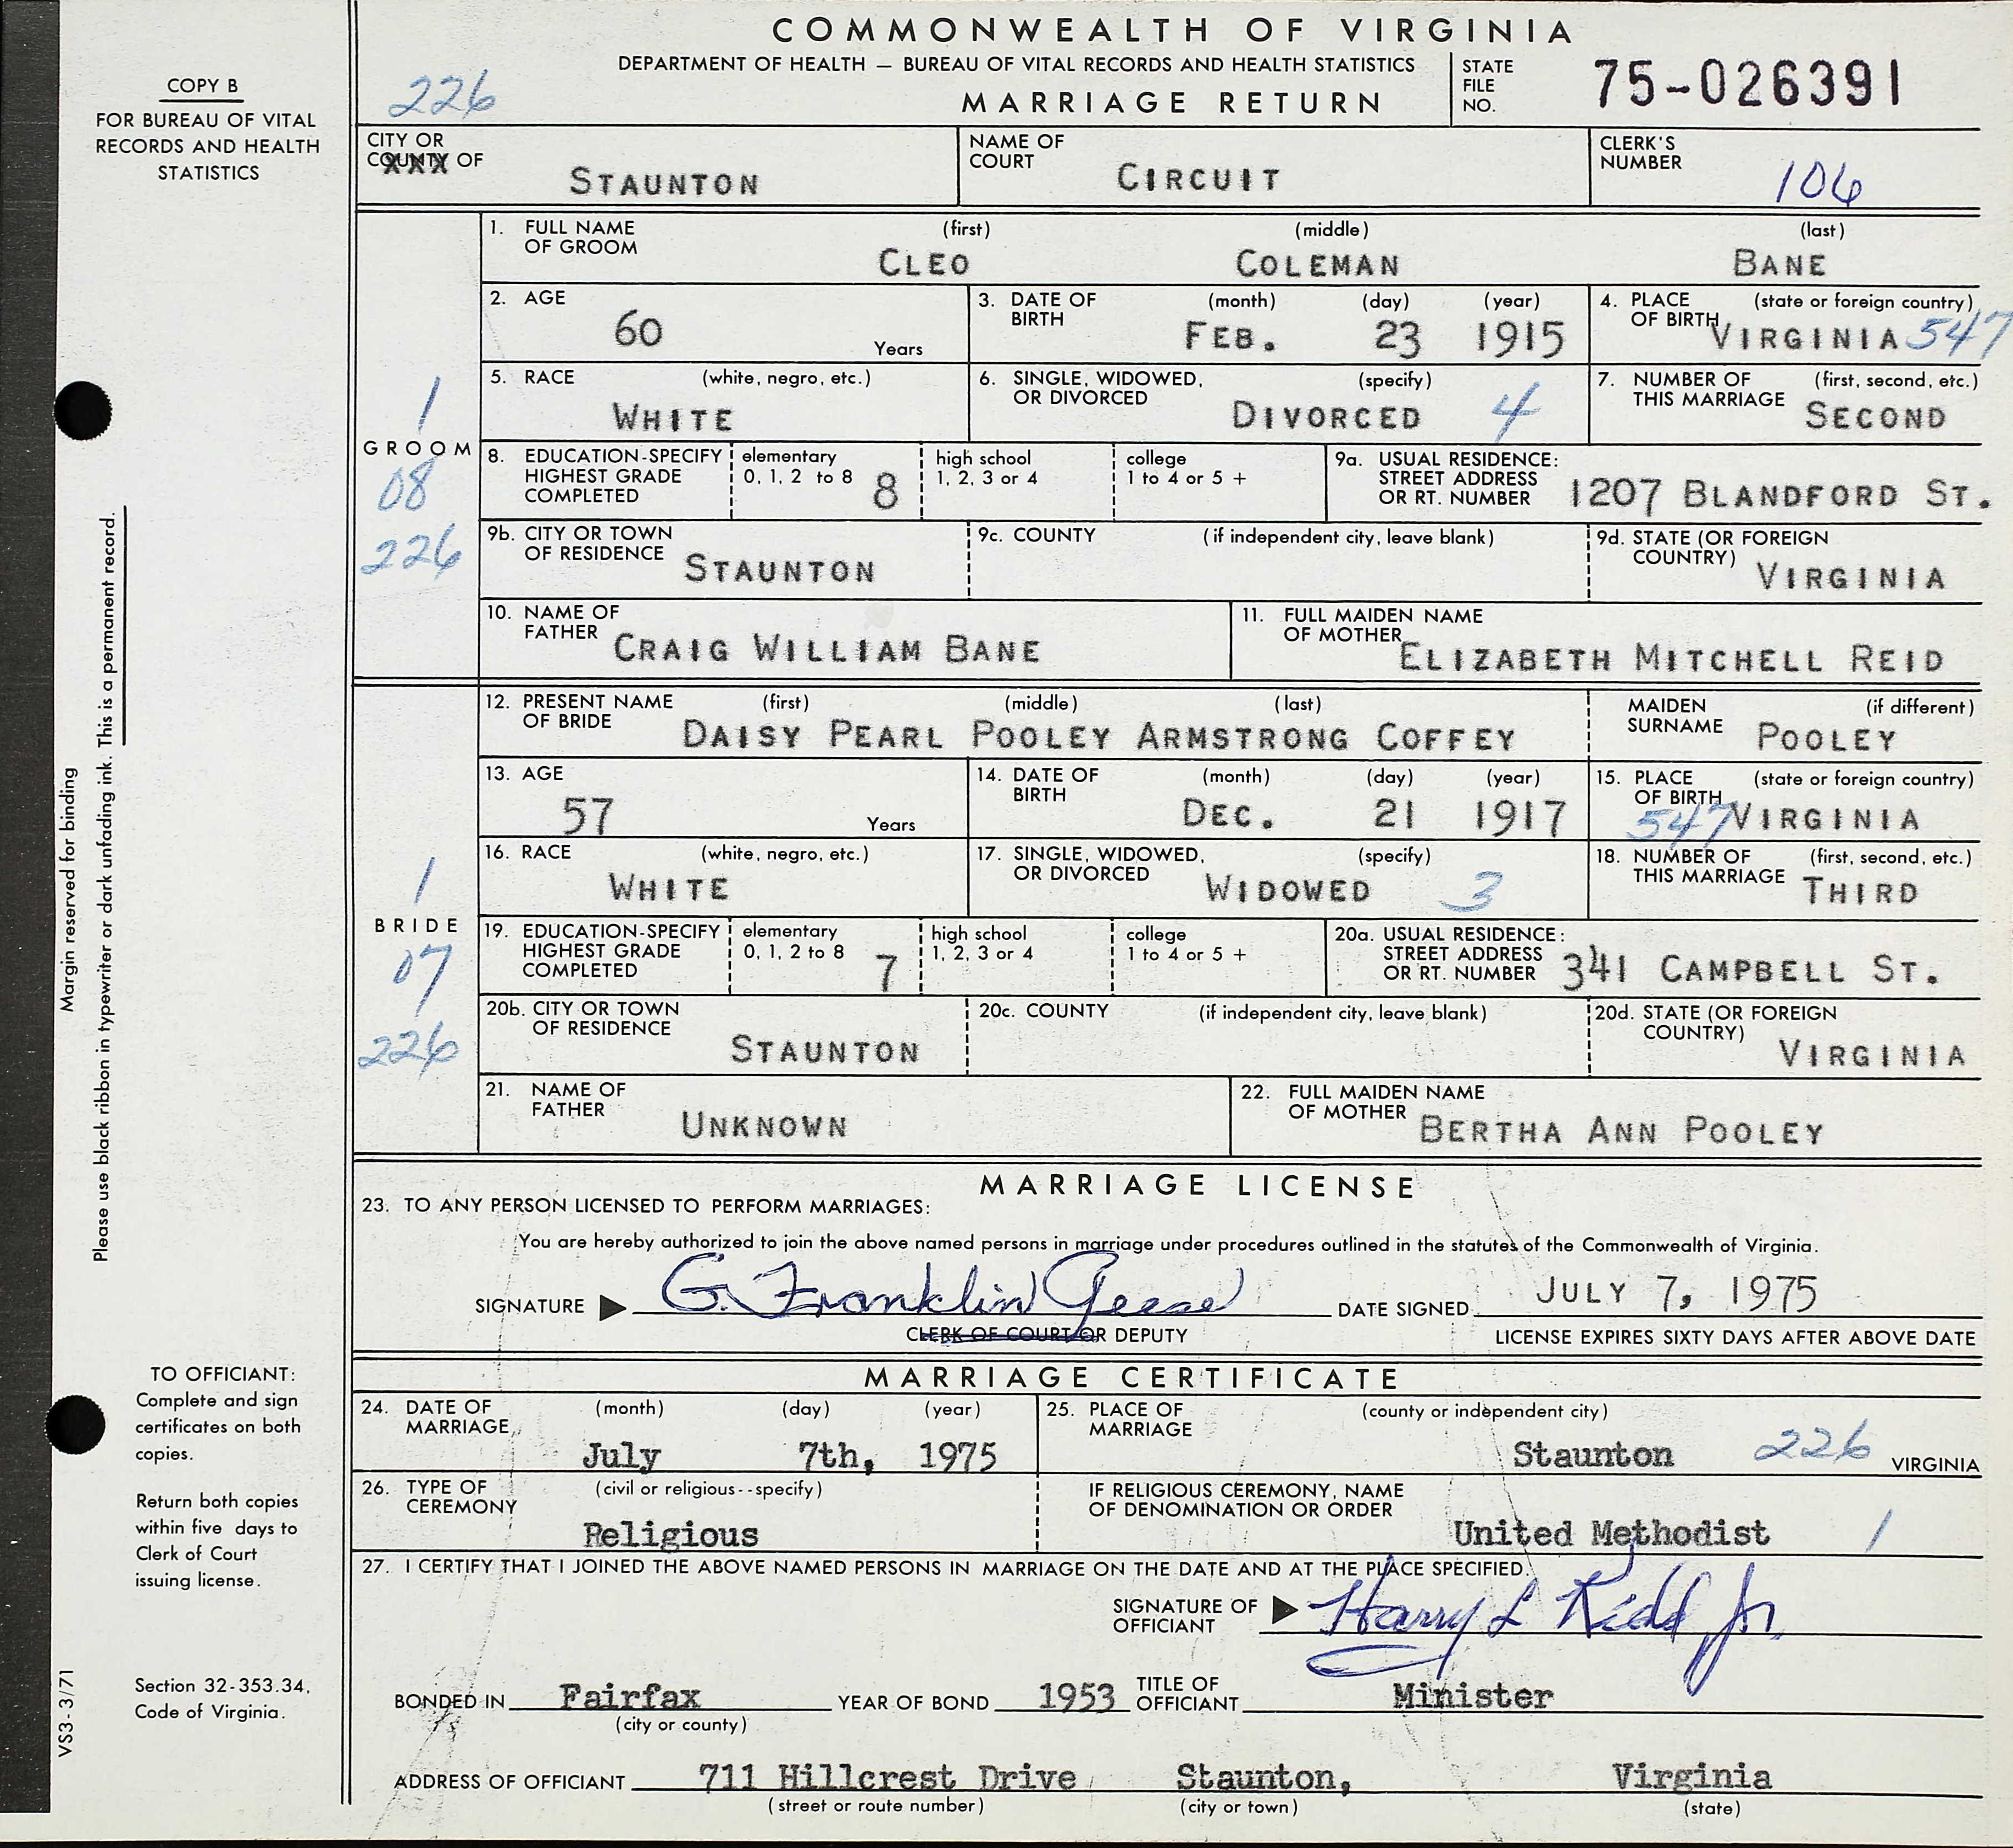 COMMONWEALTH OF VIRGINIA
DEPARTMENT OF HEALTH — BUREAU OF VITAL RECORDS AND HEALTH STATISTICS
MARRIAGE RETURN
STATE FILE NO. 75-026391
226
COPY B
FOR BUREAU OF VITAL
RECORDS AND HEALTH
STATISTICS
CITY OR
COUNTY OF XXX STAUNTON
NAME OF
COURT CIRCUIT
CLERK'S
NUMBER 106
1. FULL NAME OF GROOM (first) (middle) (last)
CLEO COLEMAN BANE
2. AGE 60 Years
3. DATE OF BIRTH (month) (day) (year)
FEB. 23 1915
4. PLACE OF BIRTH (state or foreign country)
VIRGINIA 547
5. RACE (white, negro, etc.)
WHITE
6. SINGLE, WIDOWED, OR DIVORCED (specify)
DIVORCED 4
7. NUMBER OF THIS MARRIAGE (first, second, etc.)
SECOND
1
GROOM
08
226
8. EDUCATION-SPECIFY HIGHEST GRADE COMPLETED
elementary 0, 1, 2 to 8 8
high school 1, 2, 3 or 4
college 1 to 4 or 5 +
9a. USUAL RESIDENCE: STREET ADDRESS OR RT. NUMBER 1207 BLANDFORD ST.
9b. CITY OR TOWN OF RESIDENCE STAUNTON
9c. COUNTY (if independent city, leave blank)
9d. STATE (OR FOREIGN COUNTRY) VIRGINIA
10. NAME OF FATHER CRAIG WILLIAM BANE
11. FULL MAIDEN NAME OF MOTHER ELIZABETH MITCHELL REID
12. PRESENT NAME OF BRIDE (first) (middle) (last)
DAISY PEARL POOLEY ARMSTRONG COFFEY
MAIDEN SURNAME (if different)
POOLEY
13. AGE 57 Years
14. DATE OF BIRTH (month) (day) (year)
DEC. 21 1917
15. PLACE OF BIRTH (state or foreign country)
547 VIRGINIA
16. RACE (white, negro, etc.)
WHITE
17. SINGLE, WIDOWED, OR DIVORCED (specify)
WIDOWED 3
18. NUMBER OF THIS MARRIAGE (first, second, etc.)
THIRD
1
BRIDE
07
226
19. EDUCATION-SPECIFY HIGHEST GRADE COMPLETED
elementary 0, 1, 2 to 8 7
high school 1, 2, 3 or 4
college 1 to 4 or 5 +
20a. USUAL RESIDENCE: STREET ADDRESS OR RT. NUMBER 341 CAMPBELL ST.
20b. CITY OR TOWN OF RESIDENCE STAUNTON
20c. COUNTY (if independent city, leave blank)
20d. STATE (OR FOREIGN COUNTRY) VIRGINIA
21. NAME OF FATHER UNKNOWN
22. FULL MAIDEN NAME OF MOTHER BERTHA ANN POOLEY
MARRIAGE LICENSE
23. TO ANY PERSON LICENSED TO PERFORM MARRIAGES:
You are hereby authorized to join the above named persons in marriage under procedures outlined in the statutes of the Commonwealth of Virginia.
SIGNATURE G. Franklin DATE SIGNED JULY 7, 1975
CLERK OF COURT OR DEPUTY
LICENSE EXPIRES SIXTY DAYS AFTER ABOVE DATE
MARRIAGE CERTIFICATE
24. DATE OF MARRIAGE (month) (day) (year)
July 7th, 1975
25. PLACE OF MARRIAGE (county or independent city)
Staunton 226 VIRGINIA
26. TYPE OF CEREMONY (civil or religious--specify)
Religious
IF RELIGIOUS CEREMONY, NAME OF DENOMINATION OR ORDER
United Methodist 1
27. I CERTIFY THAT I JOINED THE ABOVE NAMED PERSONS IN MARRIAGE ON THE DATE AND AT THE PLACE SPECIFIED.
SIGNATURE OF OFFICIANT Harry L Kidd Jr.
BONDED IN Fairfax YEAR OF BOND 1953 TITLE OF OFFICIANT Minister
(city or county)
ADDRESS OF OFFICIANT 711 Hillcrest Drive Staunton, Virginia
(street or route number) (city or town) (state)
Margin reserved for binding
Please use black ribbon in typewriter or dark unfading ink. This is a permanent record.
TO OFFICIANT:
Complete and sign
certificates on both
copies.
Return both copies
within five days to
Clerk of Court
issuing license.
Section 32-353.34,
Code of Virginia.
VS3-3/71